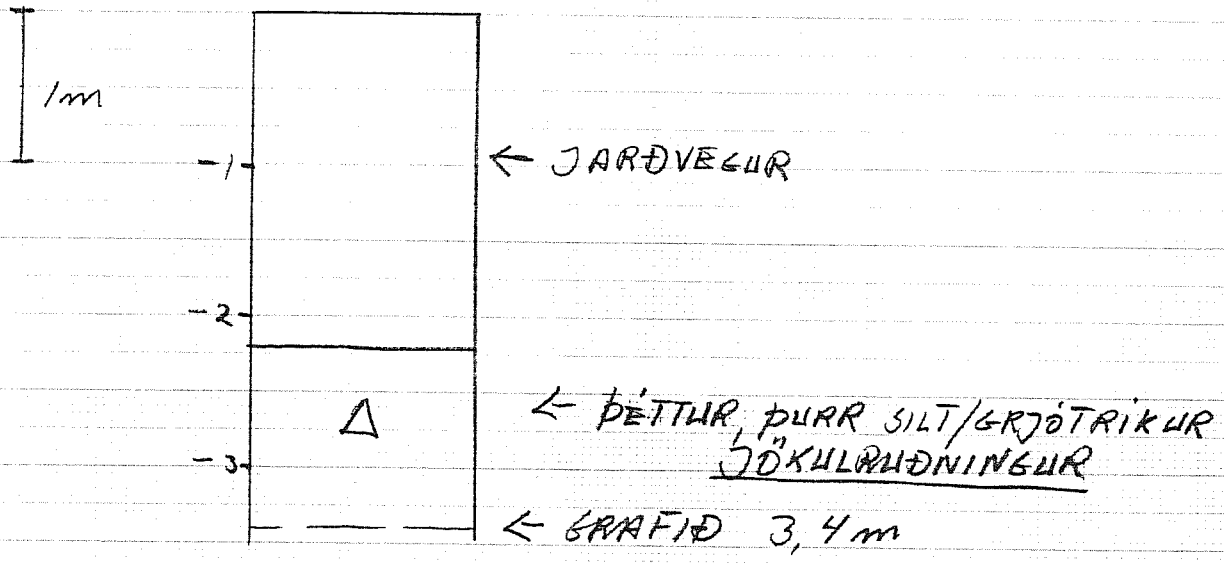 1m
-1
← JARÐVEGUR
-2
Δ
← ÞÉTTUR, ÞURR SILT/GRJÓTRÍKUR
JÖKULRUÐNINGUR
-3
← GRAFIÐ 3,4 m